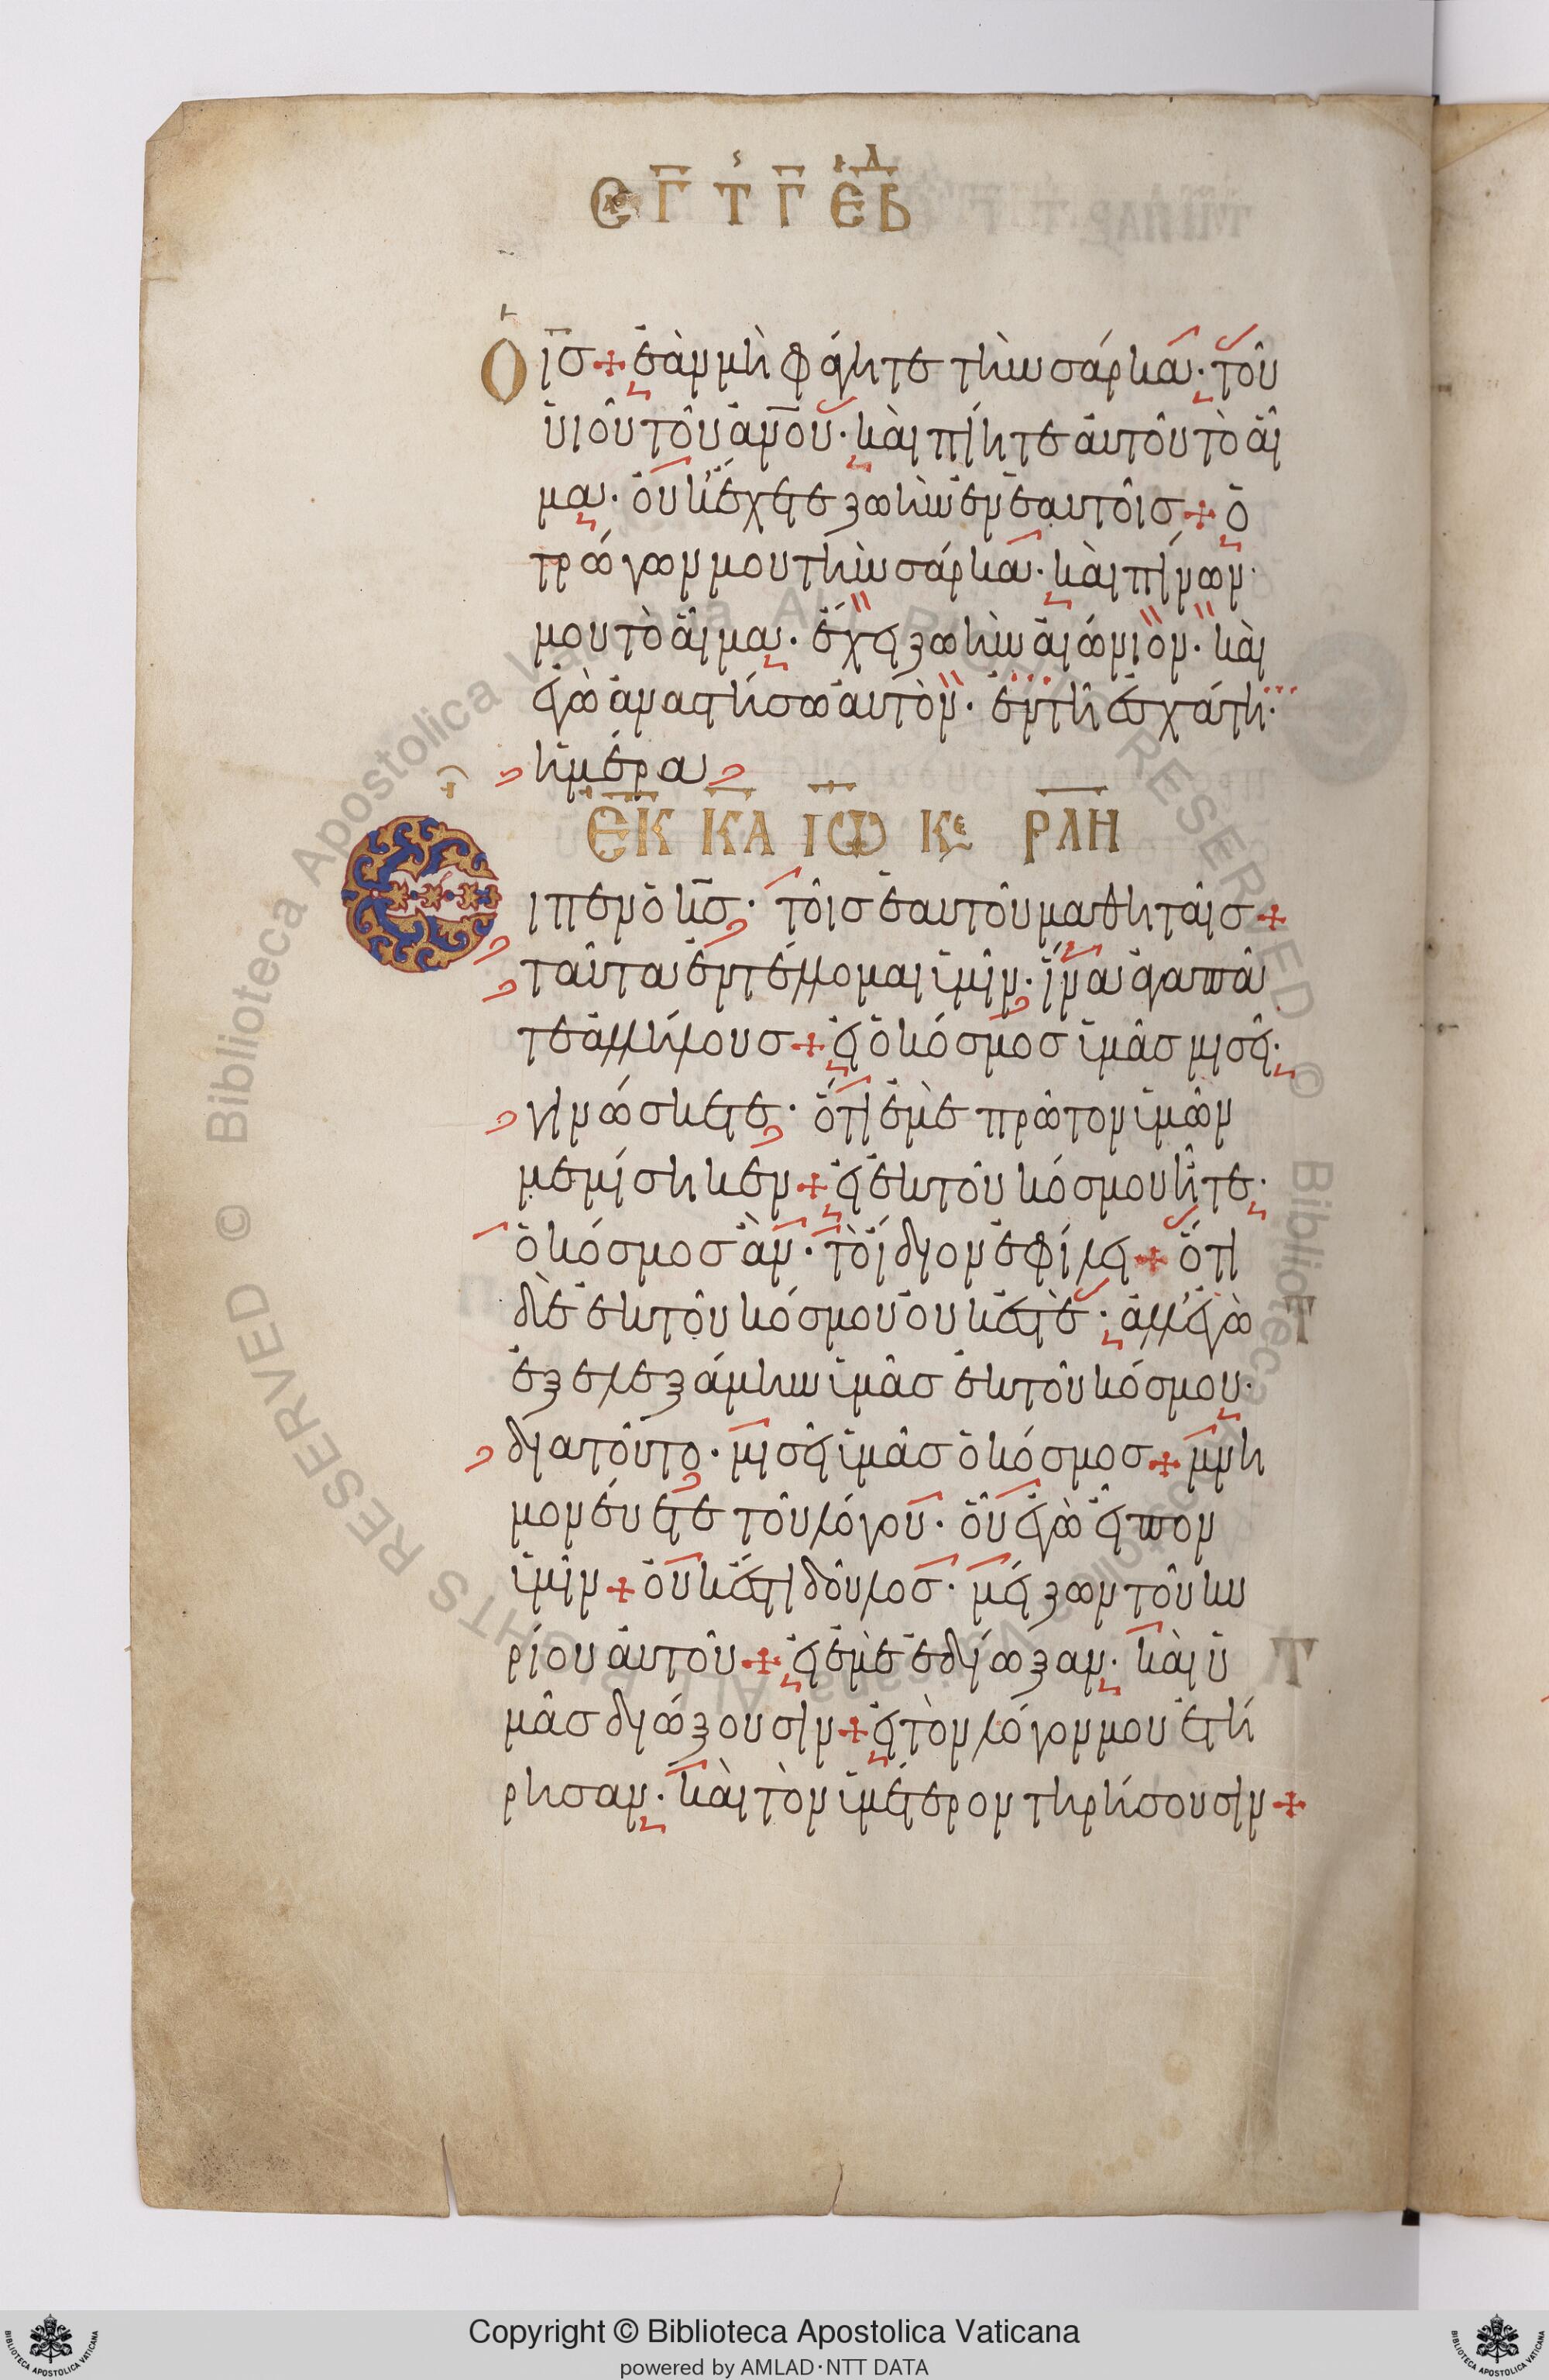 Ε Γ Τ Γ ΕΒΔ
Ὁ ις + ἐὰν μὴ φάγητε τὴν σάρκα· τοῦ
υἱοῦ τοῦ ανου· καὶ πίητε αὐτοῦ τὸ αἷ
μα· οὐκ ἔχετε ζωὴν ἐν ἑαυτοῖς + ὁ
τρώγων μου τὴν σάρκα· καὶ πίνων
μου τὸ αἷμα· ἔχει ζωὴν αἰώνιον· καὶ
ἐγὼ ἀναστήσω αὐτὸν· ἐν τῆ ἐσχάτη·
ἡμέρα
ΕΚ ΚΑ ΙΩ Κε ΡΛΗ
Ειπεν ὁ κς· τοῖς ἑαυτοῦ μαθηταῖς +
ταῦτα ἐντέλλομαι ὑμῖν· ἵνα ἀγαπᾶ
τε ἀλλήλους + εἰ ὁ κόσμος ὑμᾶς μισεῖ·
γινώσκετε· ὅτι ἐμὲ πρῶτον ὑμῶν
μεμίσηκεν + εἰ ἐκ τοῦ κόσμου ἦτε·
ὁ κόσμος ἂν· τὸ ἴδιον ἐφίλει + ὅτι
δὲ ἐκ τοῦ κόσμου οὐκ ἐστὲ· ἀλλ' ἐγὼ
ἐξελεξάμην ὑμᾶς ἐκ τοῦ κόσμου·
διατοῦτο· μισεῖ ὑμᾶς ὁ κόσμος + μνη
μονεύετε τοῦ λόγου· οὗ ἐγὼ εἶπον
ὑμῖν + οὐκ ἔστι δοῦλος· μείζων τοῦ κυ
ρίου αὐτοῦ + εἰ ἐμὲ ἐδίωξαν· καὶ ὑ
μᾶς διώξουσιν + εἰ τὸν λόγον μου ἐτή
ρησαν· καὶ τὸν ὑμέτερον τηρήσουσιν +
Copyright © Biblioteca Apostolica Vaticana
powered by AMLAD·NTT DATA